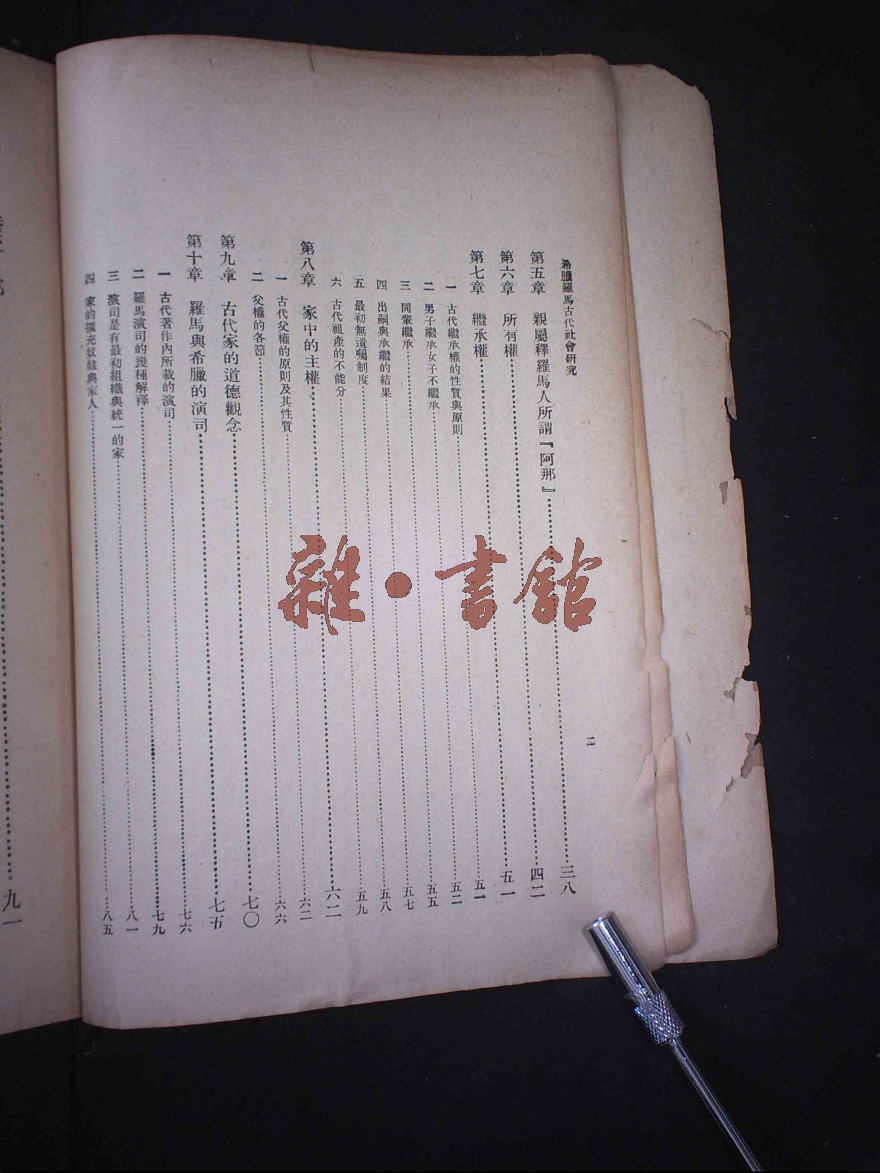 希臘羅馬古代社會研究 二
第五章 親屬釋羅馬人所謂『阿那』……三八
第六章 所有權……四二
第七章 繼承權……五一
一 古代繼承權的性質與原則……五一
二 男子繼承女子不繼承……五二
三 同輩繼承……五五
四 出嗣與承繼的結果……五七
五 最初無遺囑制度……五八
六 古代祖產的不能分……五九
第八章 家中的主權……六二
一 古代父權的原則及其性質……六二
二 父權的各節……六六
第九章 古代家的道德觀念……七〇
第十章 羅馬與希臘的演司……七五
一 古代著作內所載的演司……七六
二 羅馬演司的幾種解釋……七九
三 演司是有最初組織與統一的家……八一
四 家的擴充奴隸與家人……八五
……九一
雜·書館